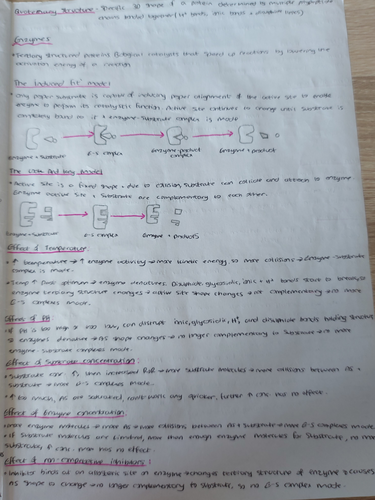 Quaternary Structure: Specific 3D shape of a protein determined by multiple polypeptide
chains bonded together (H⁺ bonds, ionic bonds + disulfide bonds)
Enzymes
• Tertiary structured proteins. Biological catalysts that speed up reactions by lowering the
activation energy of a reaction.
The 'Induced fit' model
• Only proper substrate is capable of inducing proper alignment of the active site to enable
enzyme to perform its catalytic function. Active site continues to change until substrate is
completely bound to it + enzyme-substrate complex is made
enzyme + substrate
E-S complex
enzyme-product
complex
enzyme + product
The Lock and Key Model
• Active site is a fixed shape + due to collision, substrate can collide and attach to enzyme
Enzyme active site + substrate are complementary to each other.
enzyme + substrate
E-S complex
enzyme + products
Effect of Temperature
• ↑ temperature → ↑ enzyme activity → more kinetic energy, so more collisions → enzyme-substrate
complex is made.
• Temp ↑ past optimum → enzyme denatures. Disulphide, glycosidic, ionic + H⁺ bonds start to break, so
enzyme tertiary structure changes → active site shape changes → not complementary → no more
E-S complexes made.
Effect of PH
• If PH is too high or too low, can disrupt ionic, glycosidic, H⁺, and disulphide bonds holding structure
so enzymes denature → AS shape changes → no longer complementary to substrate → no more
enzyme-substrate complexes made.
Effect of Substrate concentration:
• Substrate conc ↑s, then increased RoR → more substrate molecules → more collisions between AS +
substrate → more E-S complexes made.
• ↑ too much, AS are saturated, can't work any quicker, further ↑ conc has no effect.
Effect of Enzyme concentration:
• more enzyme molecules → more AS → more collisions between AS + substrate → more E-S complexes made.
• if substrate molecules are limited, more than enough enzyme molecules for substrate, no more
substrates, E conc. has no effect.
Effect of non competitive inhibitors:
• Inhibitor binds at an allosteric site on enzyme → changes tertiary structure of enzyme + causes
AS shape to change → no longer complementary to substrate, so no E-S complex made.